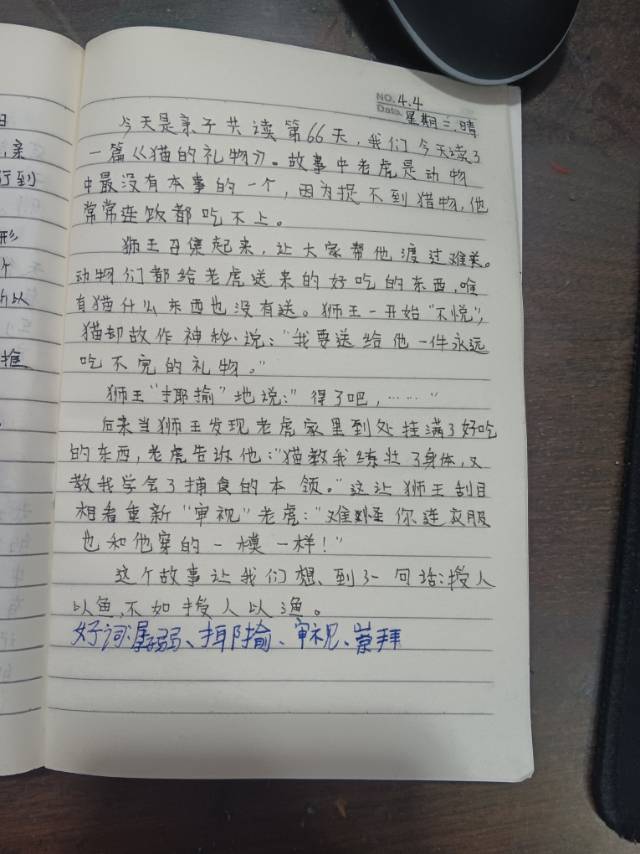 NO. 4.4
Date. 星期三.晴
今天是亲子共读第66天，我们今天读了
一篇《猫的礼物》。故事中老虎是动物
中最没有本事的一个，因为捉不到猎物，他
常常连饭都吃不上。
狮王召集起来，让大家帮他渡过难关。
动物们都给老虎送来的好吃的东西，唯
有猫什么东西也没有送。狮王一开始“不悦”，
猫却故作神秘说：“我要送给他一件永远
吃不完的礼物。”
狮王“揶揄”地说：“得了吧，……”
后来当狮王发现老虎家里到处挂满了好吃
的东西，老虎告诉他：“猫教我练壮了身体，又
教我学会了捕食的本领。”这让狮王刮目
相看重新“审视”老虎：“难怪你连衣服
也和他穿的一模一样！”
这个故事让我们想到了一句话：授人
以鱼，不如授人以渔。
好词：孱弱、揶揄、审视、崇拜
日
亲
行到
形
个
以